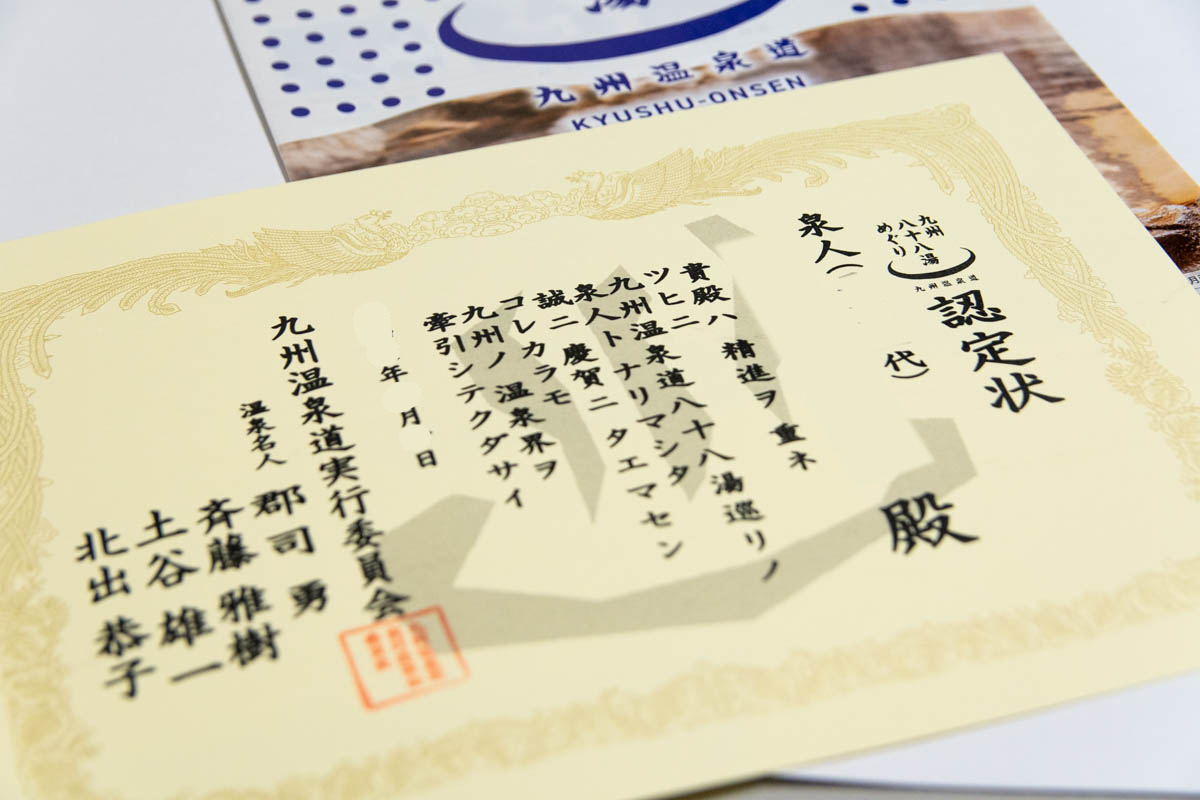 湯
九州温泉道
KYUSHU-ONSEN
九州
八十八湯
めぐり
九州温泉道
認定状
泉人(
代)
殿
貴殿ハ 精進ヲ重ネ
ツヒニ
九州温泉道八十八湯巡リノ
泉人トナリマシタ
誠ニ慶賀ニタエマセン
コレカラモ
九州ノ温泉界ヲ
牽引シテクダサイ
年 月 日
九州温泉道実行委員会
温泉名人 郡司 勇
斉藤雅樹
土谷雄一
北出恭子